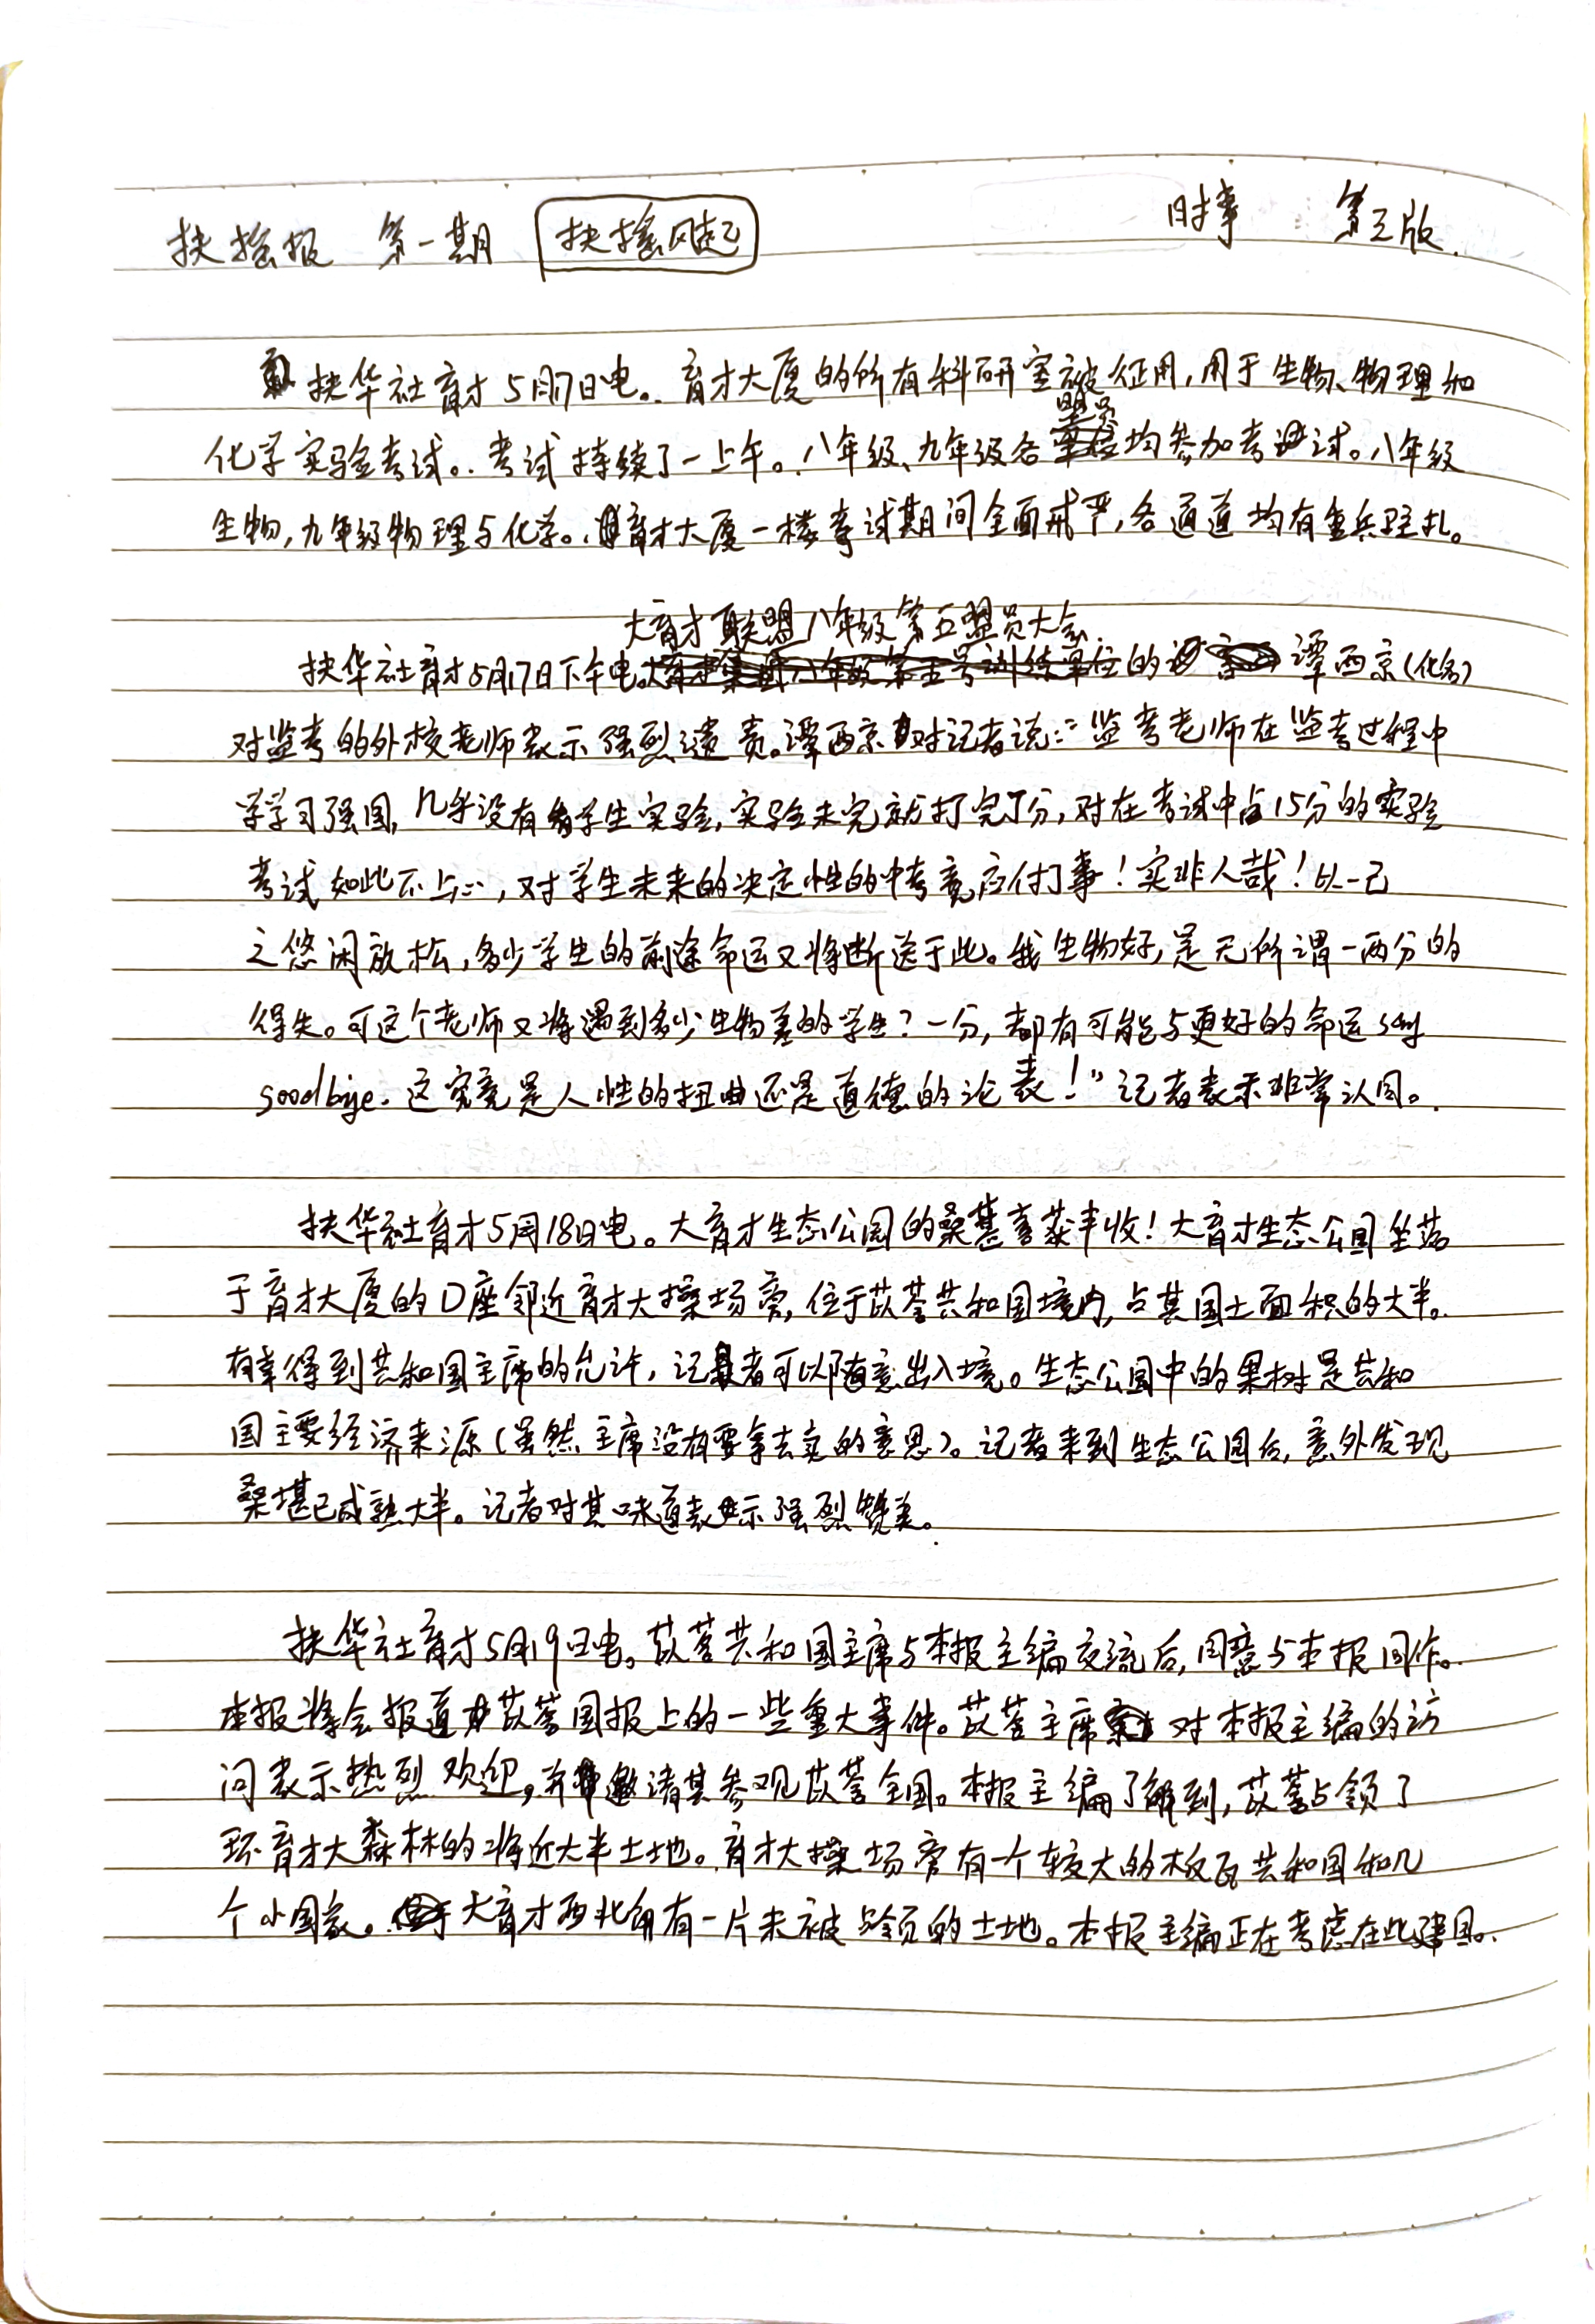 扶摇报 第一期 扶摇风起 时事 第三版
扶华社育才5月17日电。育才大厦的所有科研室被征用,用于生物、物理和
盟员
化学实验考试。考试持续了一上午。八年级、九年级各均参加考试。八年级
生物,九年级物理与化学。育才大厦一楼考试期间全面戒严,各通道均有重兵驻扎。
大育才联盟八年级第五盟员大会
扶华社育才5月17日下午电。的谭西京(化名)
对监考的外校老师表示强烈谴责。谭西京对记者说:“监考老师在监考过程中
学学习强国,几乎没有看学生实验,实验未完就打完了分,对在考试中占15分的实验
考试如此不上心,对学生未来的决定性的中考竟应付了事!实非人哉!以一己
之悠闲放松,多少学生的前途命运又将断送于此。我生物好,是无所谓一两分的
得失。可这个老师又将遇到多少生物差的学生?一分,都有可能与更好的命运say
goodbye。这究竟是人性的扭曲还是道德的沦丧!”记者表示非常认同。
扶华社育才5月18日电。大育才生态公园的桑葚喜获丰收!大育才生态公园坐落
于育才大厦的D座邻近育才大操场旁,位于苡蓉共和国境内,占其国土面积的大半。
有幸得到共和国主席的允许,记者可以随意出入境。生态公园中的果树是共和
国主要经济来源(虽然主席没有要拿去卖的意思)。记者来到生态公园后,意外发现
桑堪已成熟大半。记者对其味道表示强烈赞美。
扶华社育才5月19日电。苡蓉共和国主席与本报主编交流后,同意与本报同作。
本报将会报道苡蓉国报上的一些重大事件。苡蓉主席对本报主编的访
问表示热烈欢迎,并邀请其参观苡蓉全国。本报主编了解到,苡蓉占领了
环育才大森林的将近大半土地。育才大操场旁有一个较大的板瓦共和国和几
个小国家。大育才西北角有一片未被占领的土地。本报主编正在考虑在此建国。